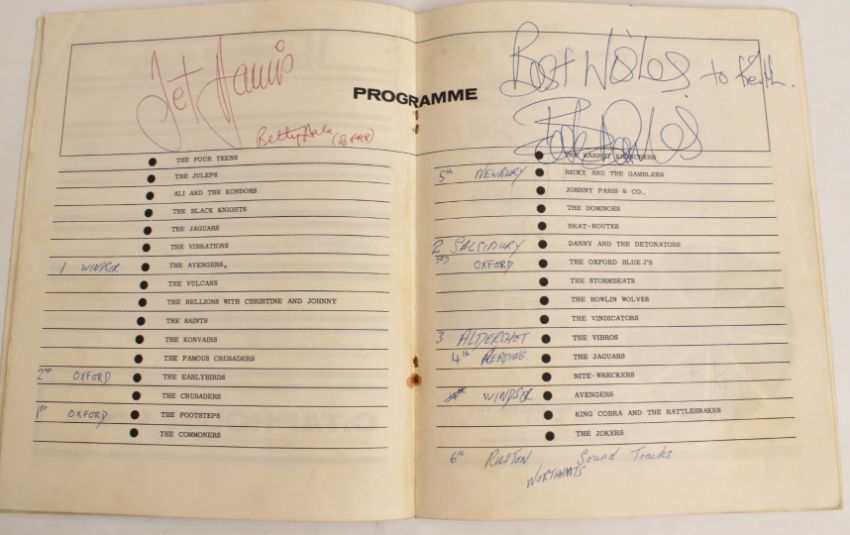 Jet Harris
Betty Hale
PROGRAMME
THE FOUR TEENS
THE JULEPS
ALI AND THE KONDORS
THE BLACK KNIGHTS
THE JAGUARS
THE VIBRATIONS
1 WINDSOR THE AVENGERS.
THE VULCANS
THE HELLIONS WITH CHRISTINE AND JOHNNY
THE SAINTS
THE KONVAIRS
THE FAMOUS CRUSADERS
2nd OXFORD THE EARLYBIRDS
THE CRUSADERS
1st OXFORD THE FOOTSTEPS
THE COMMONERS
Best Wishes to Keith.
THE
5th NEWBURY RICKY AND THE GAMBLERS
JOHNNY PARIS & CO.,
THE DOMINOES
BEAT-ROUTES
2 SALSIBURY DANNY AND THE DETONATORS
3RD OXFORD THE OXFORD BLUE J'S
THE STORMBEATS
THE HOWLIN WOLVES
THE VINDICATORS
3 ALDERSHOT THE VIBROS
4th READING. THE JAGUARS
NITE-WRECKERS
WINDSOR AVENGERS
KING COBRA AND THE RATTLESNAKES
THE JOKERS
6th RUSTON Sound Tracks
NORTHANTS